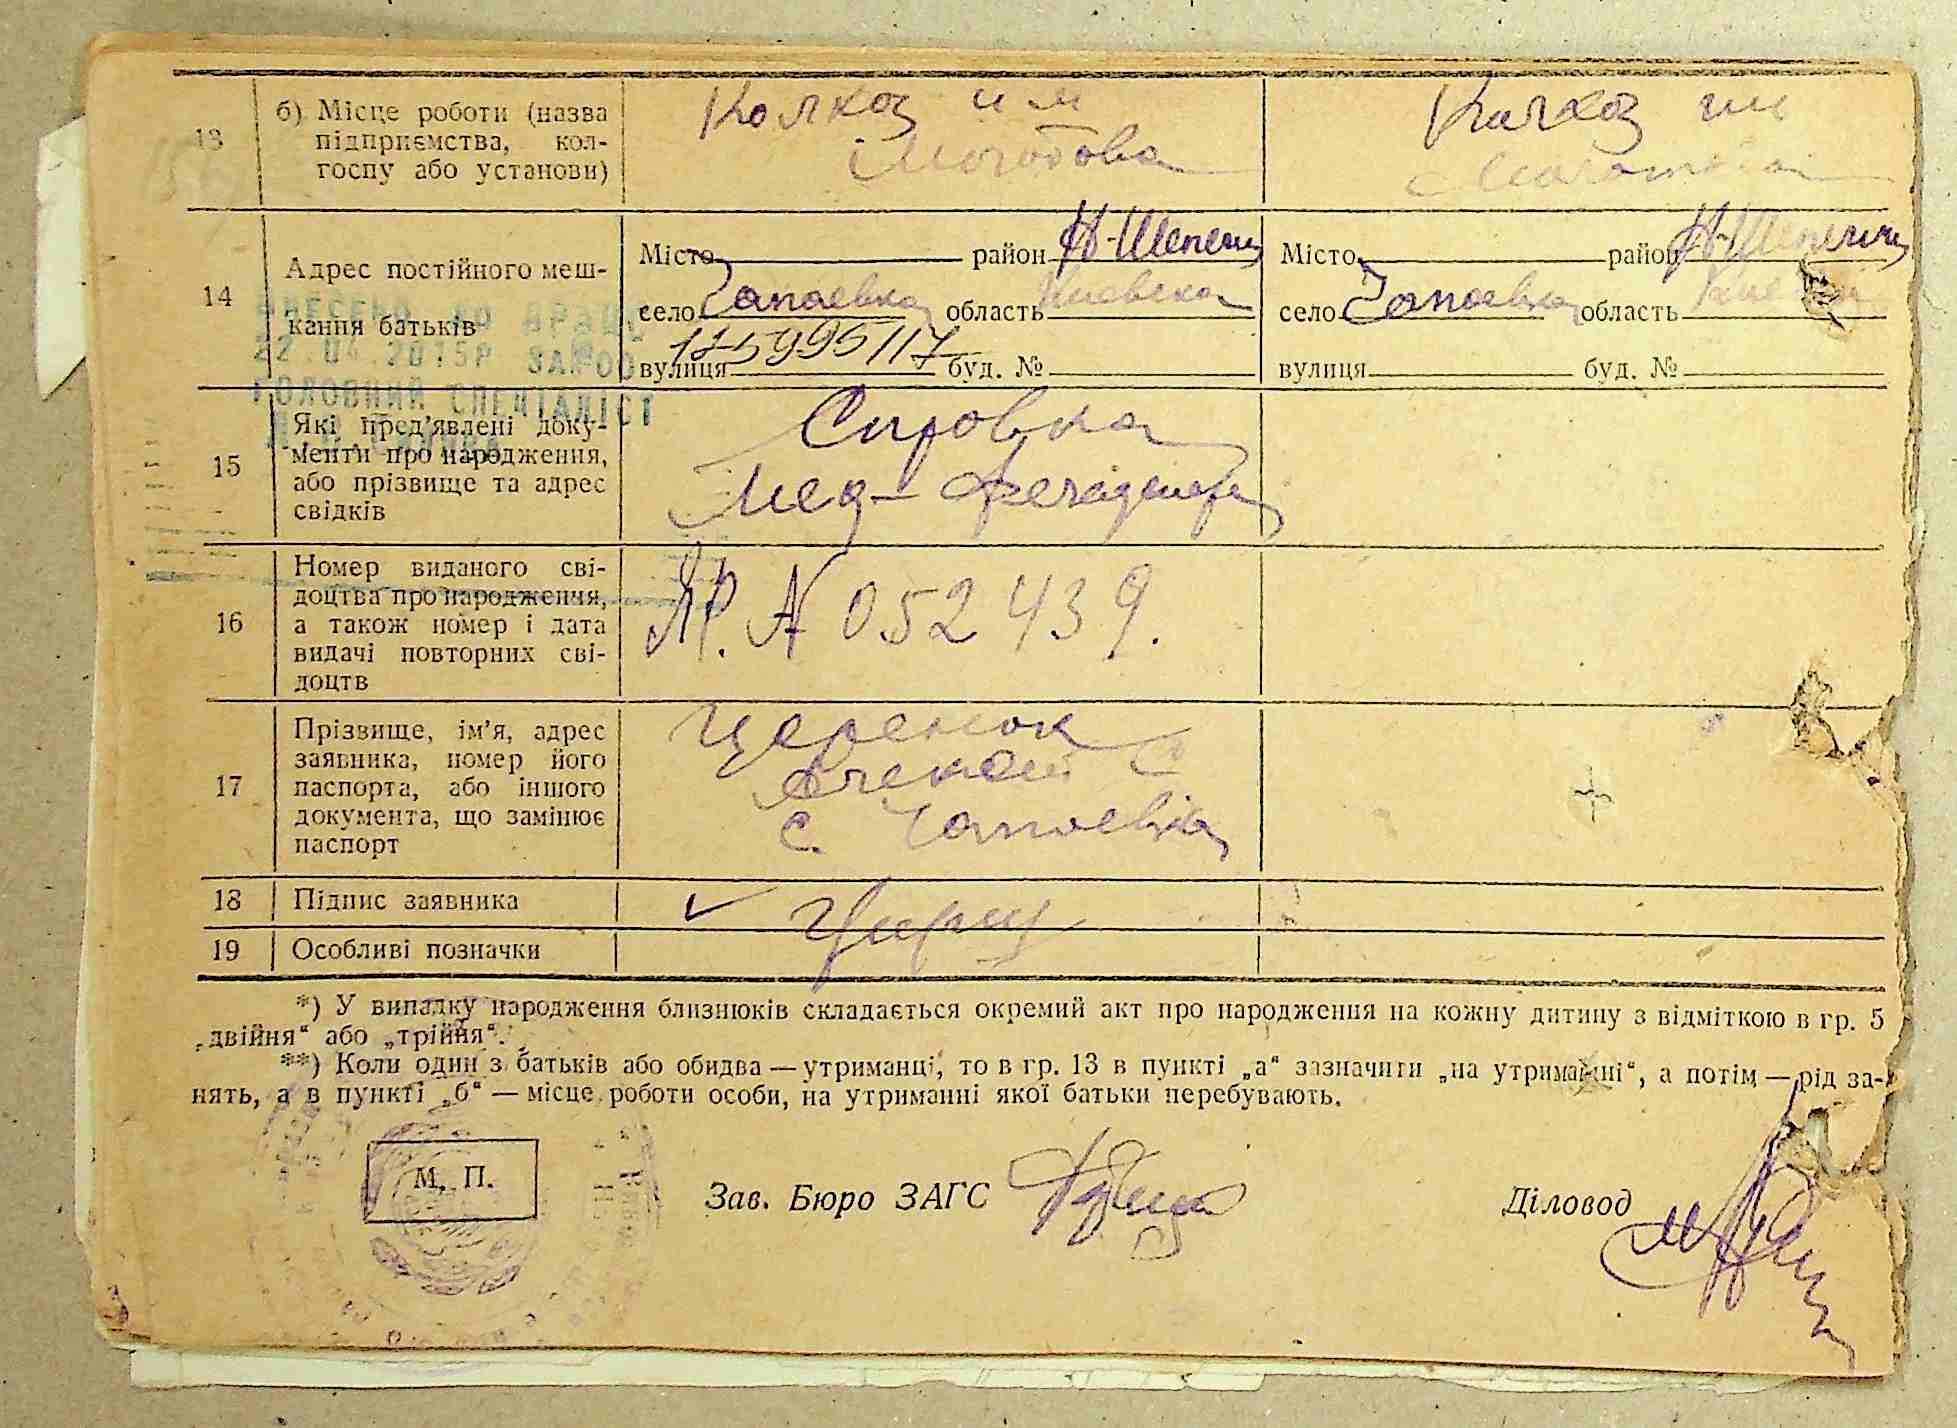 13
б) Місце роботи (назва
підприємства, кол-
госпу або установи)
Колхоз им
Молотова
Колхоз им
Молотова
14
Адрес постійного меш-
кання батьків
Місто район Н-Шепели
село Чапаевка область Киевска
вулиця 175995117 буд. №
Місто район Н-Шепеличи
село Чапаевка область
вулиця буд. №
ВНЕСЕНО ДО ДРАЦС
22.04.2015Р ЗАМ 00
ГОЛОВНИЙ СПЕЦІАЛІСТ
15
Які пред'явлені доку-
менти про народження,
або прізвище та адрес
свідків
Справка
Мед-
16
Номер виданого сві-
доцтва про народження,
а також номер і дата
видачі повторних сві-
доцтв
№ 052439.
17
Прізвище, ім'я, адрес
заявника, номер його
паспорта, або іншого
документа, що замінює
паспорт
Церенюк
Алексей С
с. Чапаевка
18
Підпис заявника
19
Особливі позначки
*) У випадку народження близнюків складається окремий акт про народження на кожну дитину з відміткою в гр. 5
„двійня“ або „трійня“.
**) Коли один з батьків або обидва — утриманці, то в гр. 13 в пункті „а“ зазначити „на утриманні“, а потім — рід за-
нять, а в пункті „б“ — місце роботи особи, на утриманні якої батьки перебувають.
М. П.
Зав. Бюро ЗАГС
Діловод